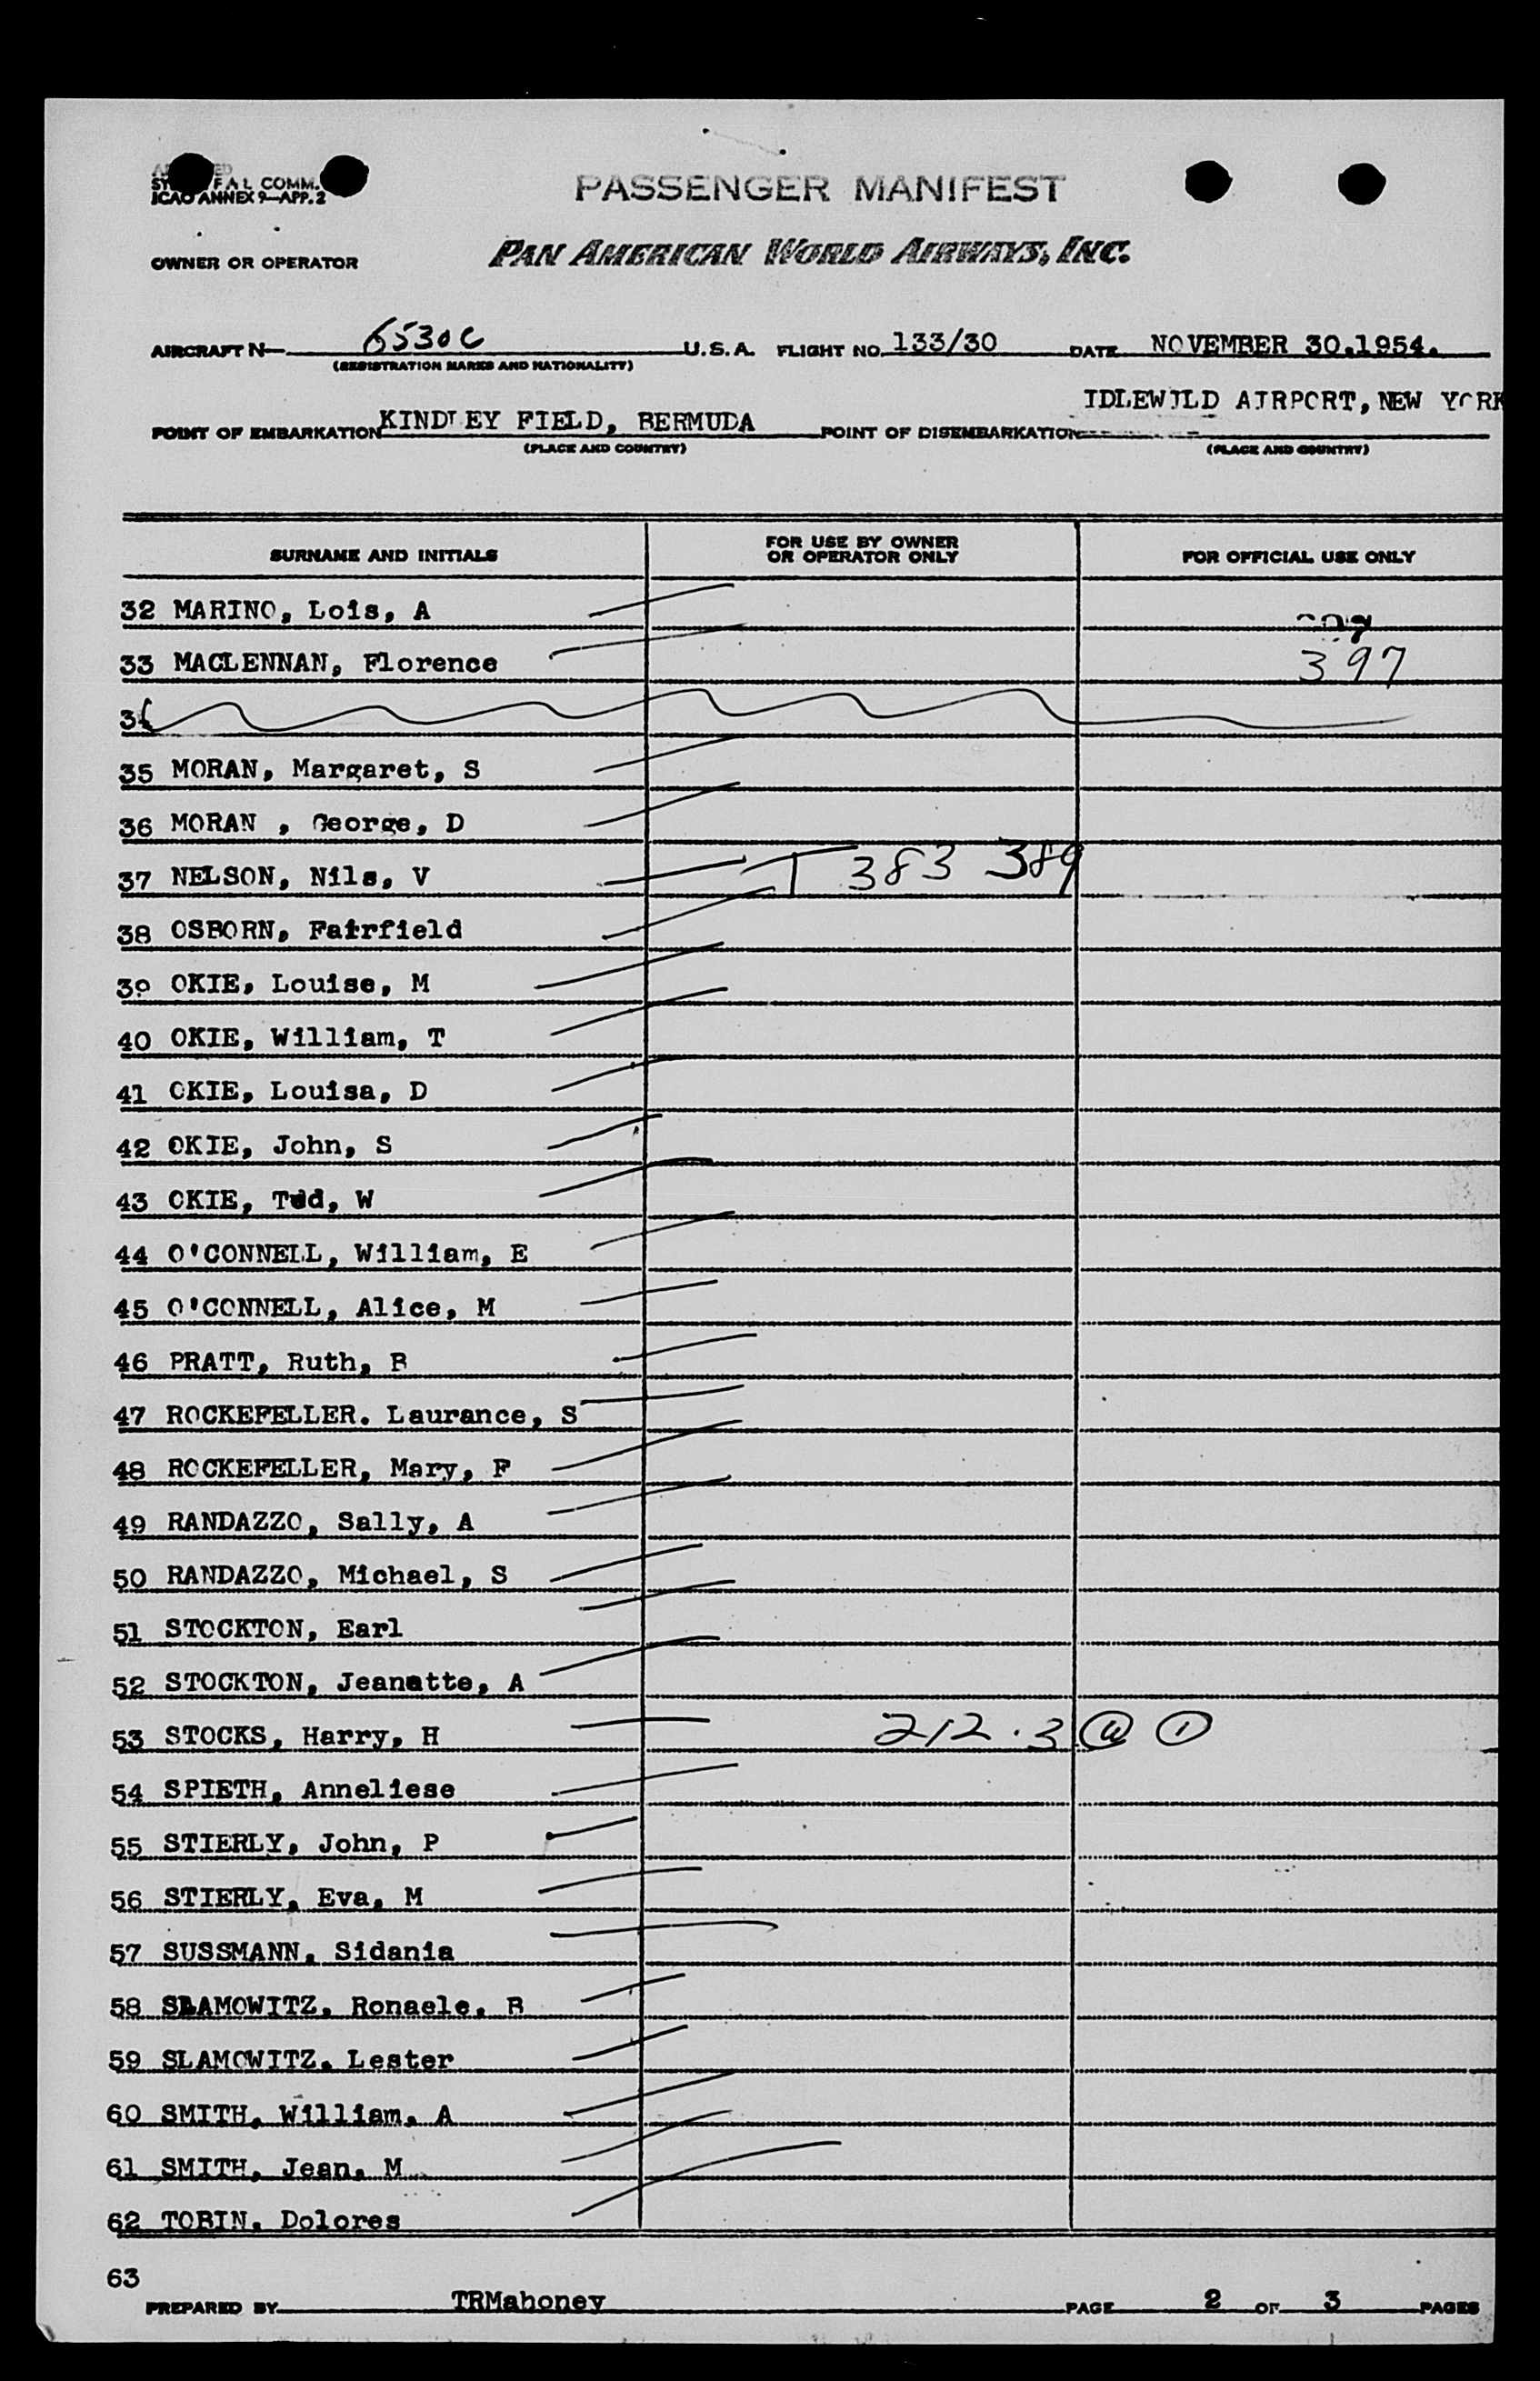 F A L COMM.
ICAO ANNEX 9—APP. 2
PASSENGER MANIFEST
OWNER OR OPERATOR PAN AMERICAN WORLD AIRWAYS, INC.
AIRCRAFT N— 6530C U.S.A. FLIGHT NO. 133/30 DATE NOVEMBER 30.1954.
(REGISTRATION MARKS AND NATIONALITY)
IDLEWILD AIRPORT, NEW YORK
POINT OF EMBARKATION KINDLEY FIELD, BERMUDA POINT OF DISEMBARKATION
(PLACE AND COUNTRY) (PLACE AND COUNTRY)
SURNAME AND INITIALS FOR USE BY OWNER OR OPERATOR ONLY FOR OFFICIAL USE ONLY
32 MARINO, Lois, A
33 MACLENNAN, Florence 397
34
35 MORAN, Margaret, S
36 MORAN , George, D
37 NELSON, Nils, V 383 389
38 OSBORN, Fairfield
39 OKIE, Louise, M
40 OKIE, William, T
41 OKIE, Louisa, D
42 OKIE, John, S
43 OKIE, Ted, W
44 O'CONNELL, William, E
45 O'CONNELL, Alice, M
46 PRATT, Ruth, B
47 ROCKEFELLER. Laurance, S
48 ROCKEFELLER, Mary, F
49 RANDAZZO, Sally, A
50 RANDAZZO, Michael, S
51 STOCKTON, Earl
52 STOCKTON, Jeanette, A
53 STOCKS, Harry, H 212.3 (a) (1)
54 SPIETH, Anneliese
55 STIERLY, John, P
56 STIERLY, Eva, M
57 SUSSMANN, Sidania
58 SLAMOWITZ, Ronaele, B
59 SLAMOWITZ, Lester
60 SMITH, William, A
61 SMITH, Jean, M
62 TOBIN. Dolores
63
PREPARED BY TRMahoney PAGE 2 OF 3 PAGES